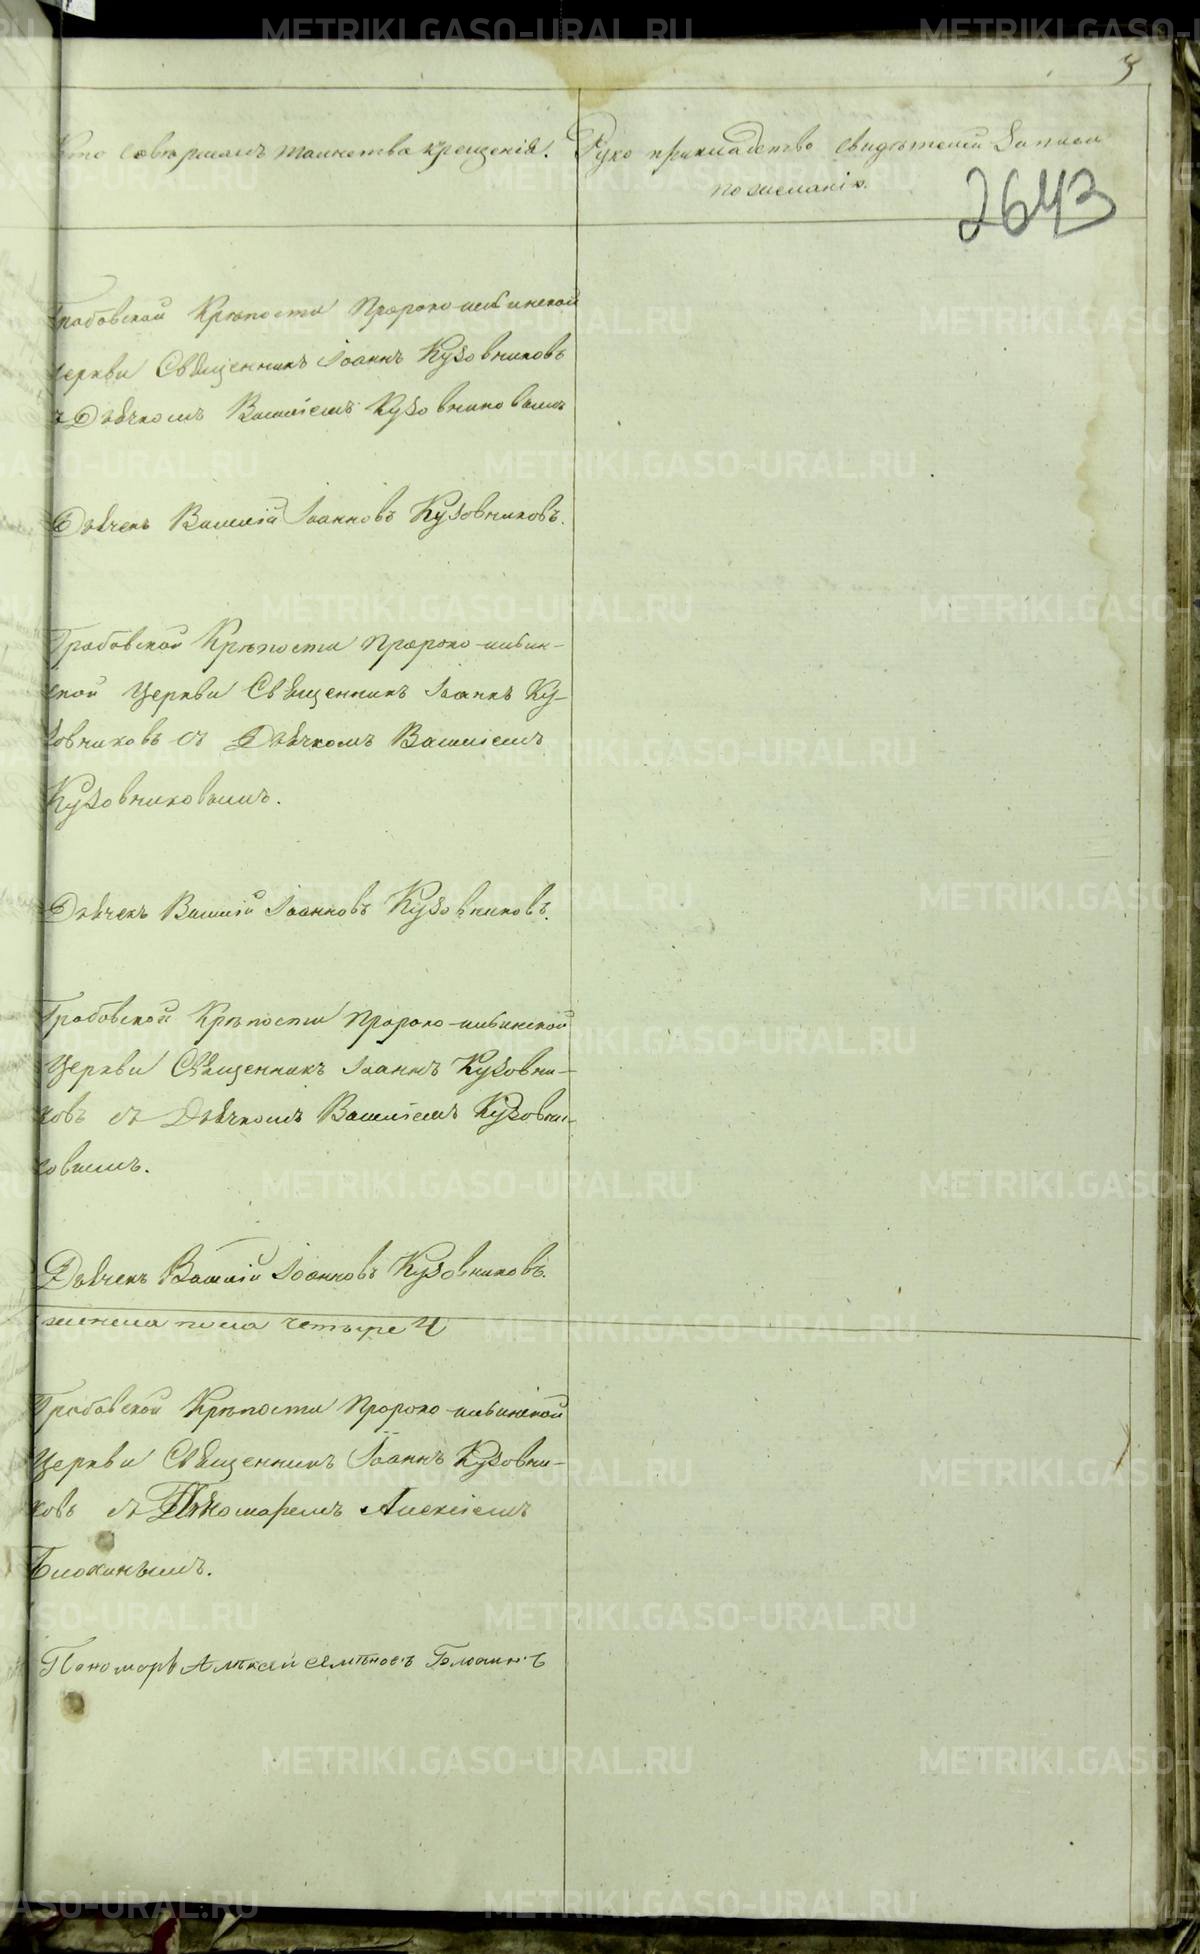 3
Кто совершалъ таинство крещенія.
Рукоприкладство свидѣтелей записи
по желанію.
2643
Грабовской Крѣпости Пророко-ильинской
церкви Священникъ Іоаннъ Кузовниковъ
съ Дьячкомъ Василіемъ Кузовниковымъ
Дьячекъ Василій Іоанновъ Кузовниковъ.
Грабовской Крѣпости Пророко-ильин-
ской Церкви Священникъ Іоаннъ Ку-
зовниковъ съ Дьячкомъ Василіемъ
Кузовниковымъ.
Дьячекъ Василій Іоанновъ Кузовниковъ.
Грабовской Крѣпости Пророко-ильинской
Церкви Священникъ Іоаннъ Кузовни-
ковъ съ Дьячкомъ Василіемъ Кузовни-
ковымъ.
Дьячекъ Василій Іоанновъ Кузовниковъ.
женска пола четыре 4
Грабовской Крѣпости Пророко-ильинской
Церкви Священникъ Іоаннъ Кузовни-
ковъ съ Пономаремъ Алексіемъ
Блохинымъ.
Пономарь Алѣксей Семѣновъ Блохинъ
METRIKI.GASO-URAL.RU